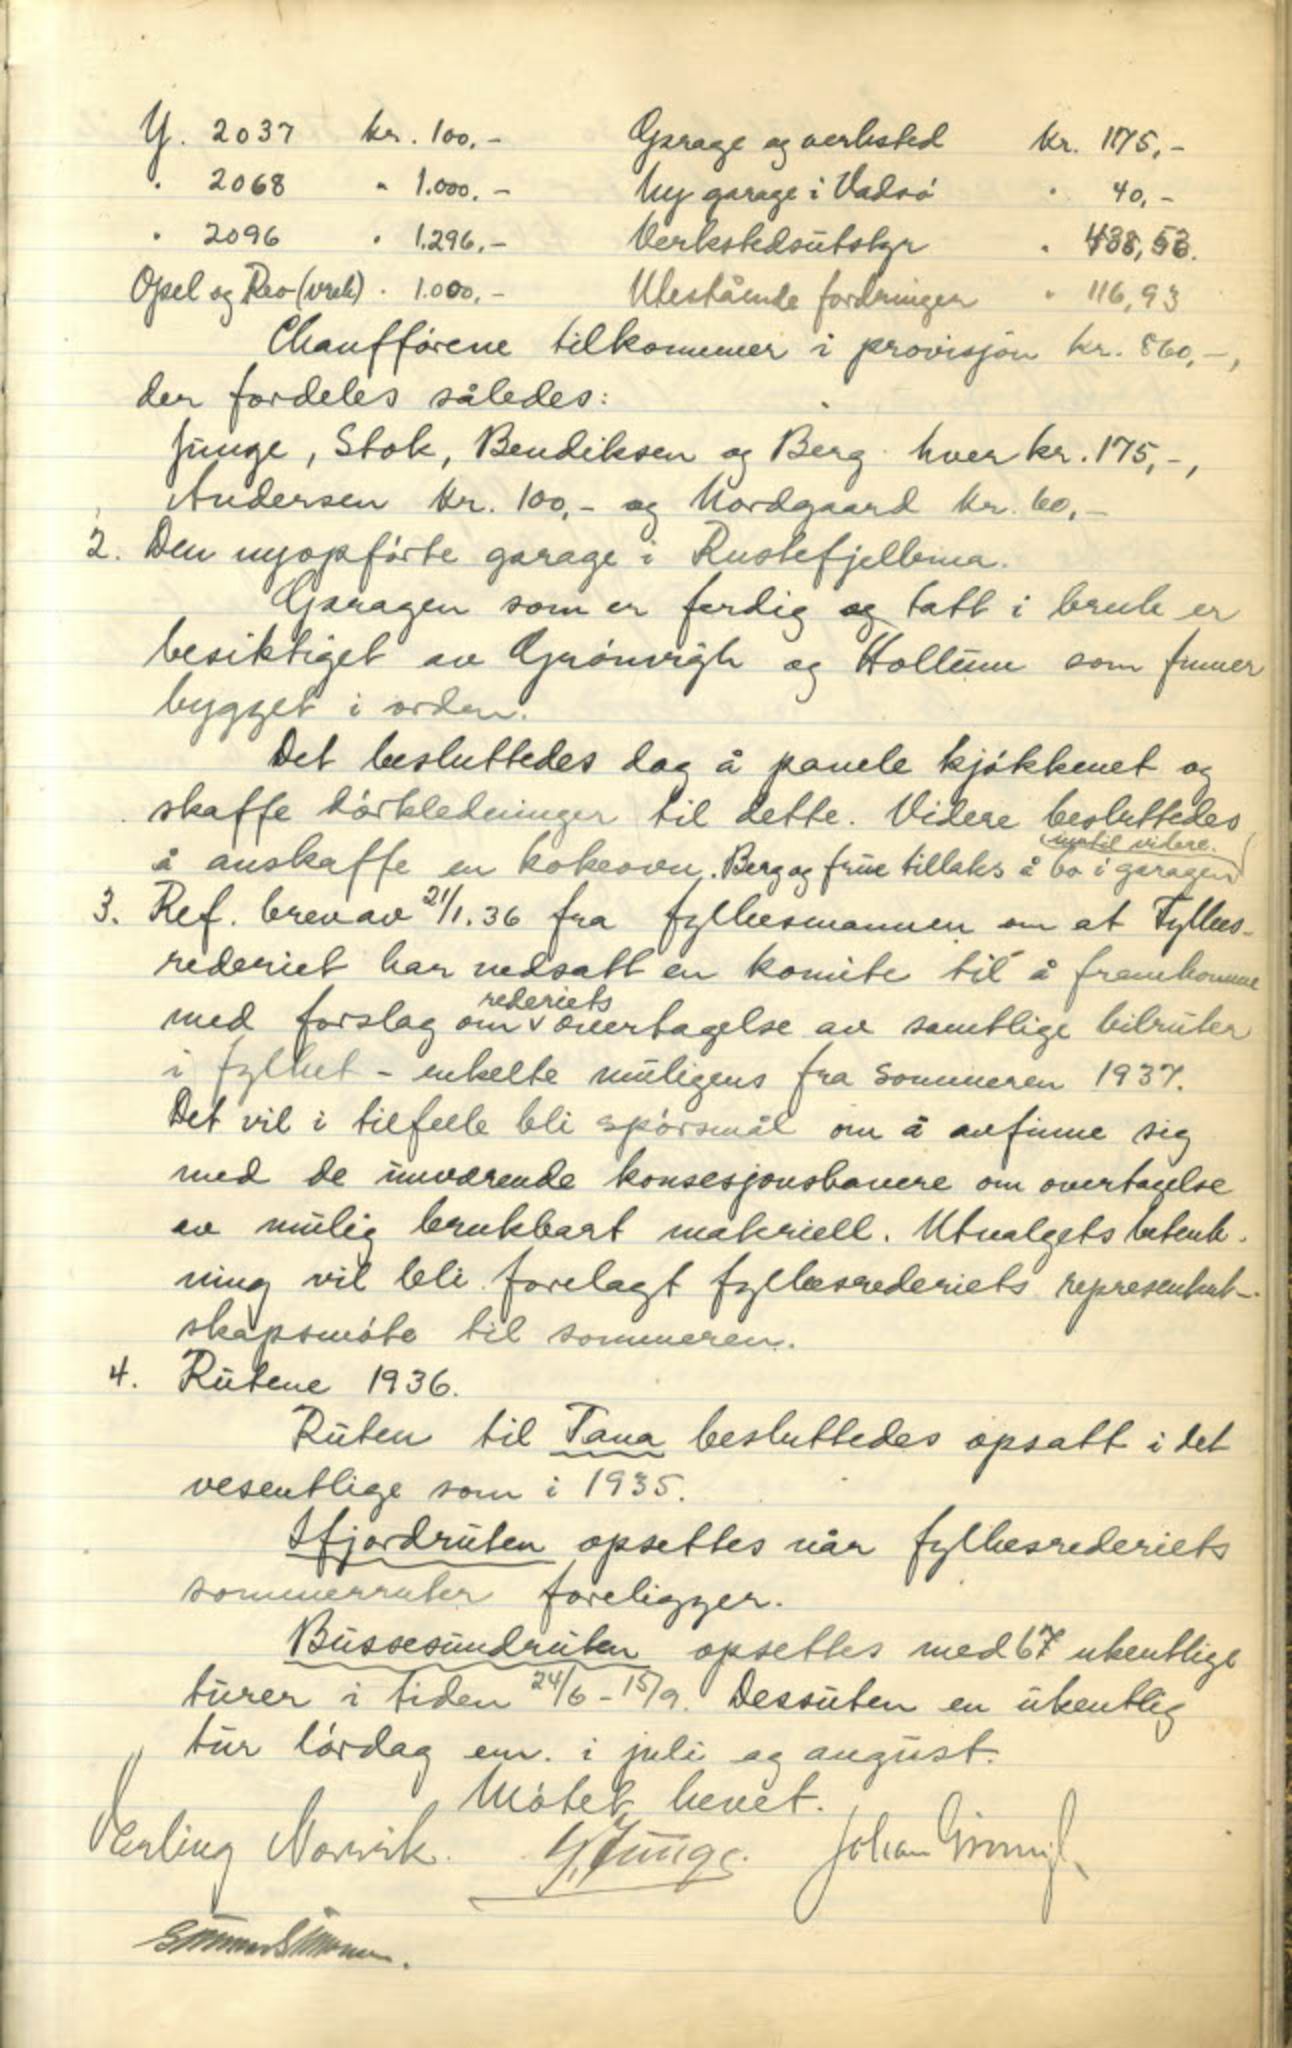 Y. 2037 kr. 100,- Garage og verksted kr. 1175,-
" 2068 " 1.000,- Ny garage i Vadsö " 40,-
" 2096 " 1.296,- Verkstedsutstyr "
Opel og Reo (vrak) " 1.000,- Utestående fordringer " 116,93
Chaufförene tilkommer i provisjon kr. 860,-,
der fordeles således:
Junge, Stok, Bendiksen og Berg hver kr. 175,-,
Andersen kr. 100,- og Nordgaard kr. 60,-
2. Den nyopförte garage i Rustefjellbma.
Garagen som er ferdig og tatt i bruk er
besiktiget av Grönvigh og Hollum som finner
bygget i orden.
Det besluttedes dog å panele kjökkenet og
skaffe dörkledninger til dette. Videre besluttedes
å anskaffe en kokeovn. Berg og frue tillates å bo i garagen
inntil videre.
3. Ref. brev av 21/1.36 fra fylkesmannen om at Fylkes-
rederiet har nedsatt en komite til å fremkomme
med forslag om rederiets overtagelse av samtlige bilruter
i fylket - enkelte muligens fra sommeren 1937.
Det vil i tilfelle bli spörsmål om å avfinne sig
med de nuværende konsesjonshavere om overtagelse
av mulig brukbart materiell. Utvalgets betenk-
ning vil bli forelagt fylkesrederiets representant-
skapsmöte til sommeren.
4. Rutene 1936.
Ruten til Tana besluttedes opsatt i det
vesentlige som i 1935.
Ifjordruten opsettes når fylkesrederiets
sommerruter foreligger.
Bussesundruten opsettes med 67 ukentlige
turer i tiden 24/6 - 15/9. Dessuten en ukentlig
tur lördag em. i juli og august.
Mötet hevet.
Erling Norvik. Junge. Johan Grönvigh